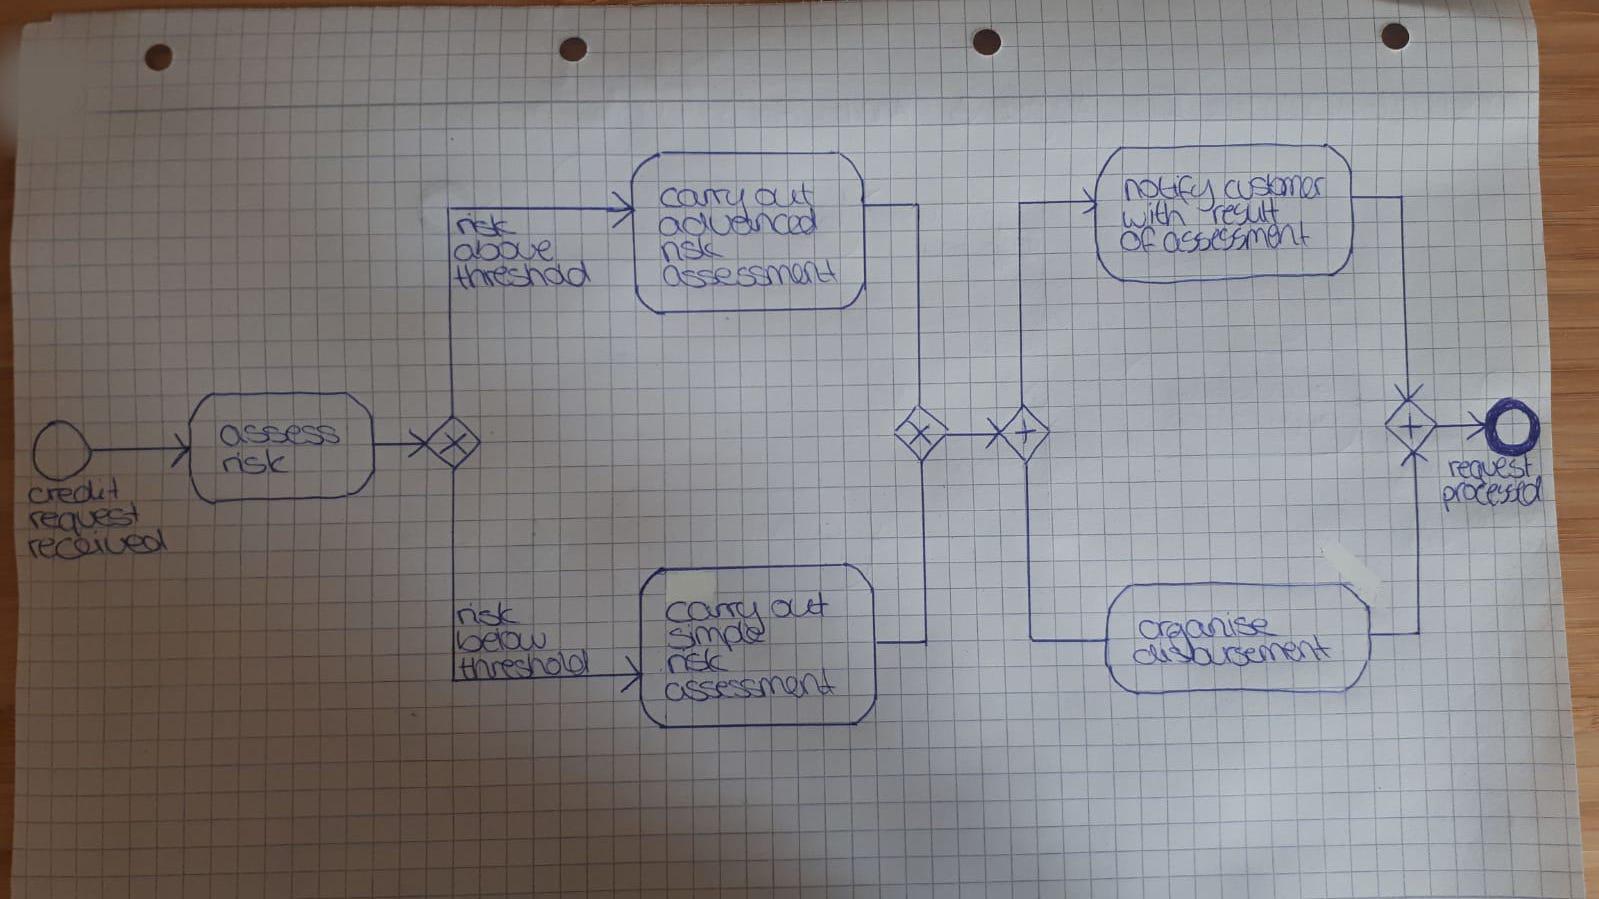 credit
request
received
assess
risk
risk
above
threshold
carry out
advanced
risk
assessment
risk
below
threshold
carry out
simple
risk
assessment
notify customer
with result
of assessment
organise
disbursement
request
processed